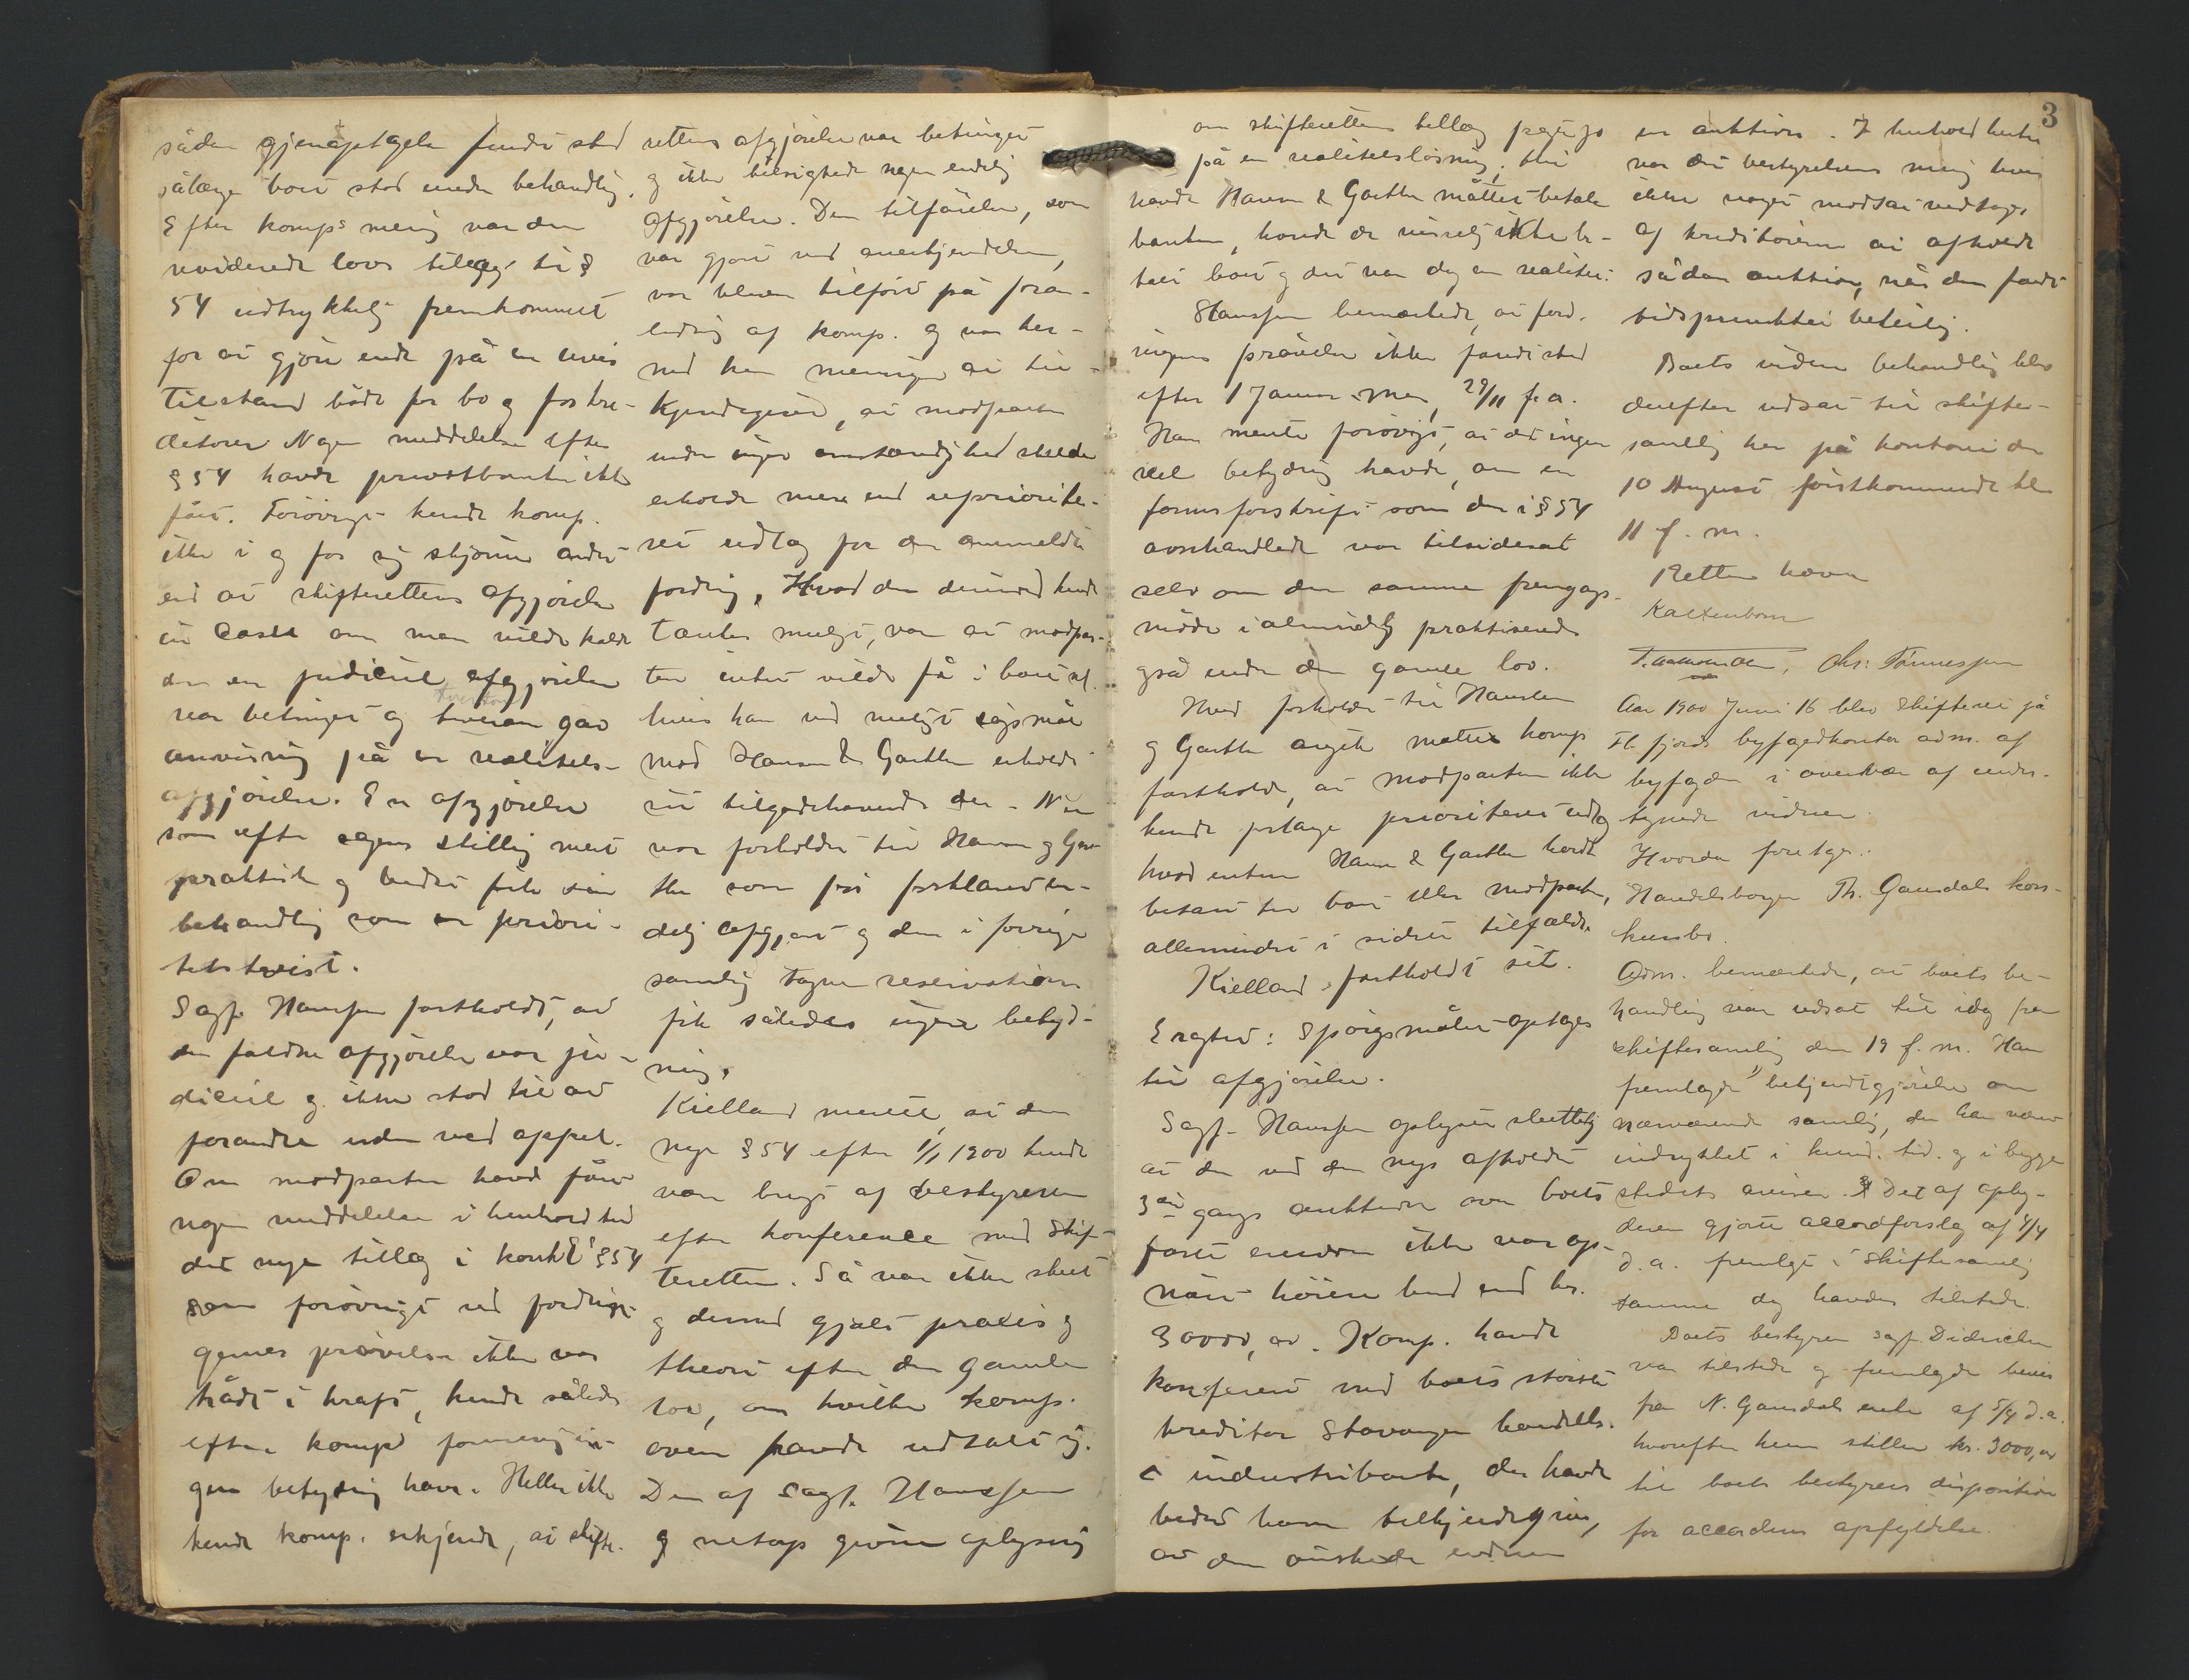 sådan gjenoptagelse fandt sted
sålænge boet stod under behandling.
Efter komps mening var den
reviderede lovs tillæg til §
54 udtrykkelig fremkommet
for at gjøre ende på en uvis
tilstand både for bo og forkre-
ditorer Nogen meddelelse efter
§ 54 havde privatbanken ikke
fået. Forøvrigt kunde komp.
ikke i og for sig skjønne andet
end at skifterettens afgjørelse
in casu om man vilde kalde
den en judiciel afgjørelse
var betinget og tvertom gav
anvisning på en realitets-
afgjørelse. En afgjørelse
som efter sagens stilling mest
praktisk og bedst fik sin
behandling som en priori-
tetstvist.
Sagf. Hanssen fastholdt, at
den faldne afgjørelse var ju-
diciel og ikke stod til at
forandre uden ved appel.
Om modparten havde fået
nogen meddelelse i henhold til
det nye tillæg i konkl § 54
som forøvrigt ved fordrin-
gernes prøvelse ikke var
trådt i kraft, kunde således
efter komps formening in-
gen betydning have. Heller ikke
kunde komp. erkjende, at skifte-
rettens afgjørelse var betinget
og ikke tilsigtede nogen endelig
afgjørelse. Den tilførelse, som
var gjort ved anerkjendelsen,
var bleven tilført på foran-
ledning af komp. og var her-
med kun meningen at til-
kjendegive, at modparten
under ingen omstændighed skulde
erholde mere end uprioritе-
ret udlæg for den anmeldte
fordring, Hvad der derimod kunde
tænkes muligt, var at modpar-
ten intet vilde få i boet
hvis han ved muligt søgsmål
mod Hansen & Garthe erholdt
sit tilgodehavende der. Nu
var forholdet til Hansen og Gar-
the som før forklaret en-
delig afgjort og den i forrige
samling tagne reservation
fik således ingen betyd-
ning.
Kielland mente, at den
nye § 54 efter 1/1 1900 kunde
være brugt af bestyreren
efter konference med skif-
teretten. Så var ikke skeet
og dermed gjalt praxis og
theori efter den gamle
lov, om hvilken komp.
oven havde udtalt sig.
Den af sagf. Hanssen
og netop givne oplysning
om skifterettens tillæg peget jo
på en realitetsløsning; thi
havde Hansen & Garthe måttet betale
banken, kunde de umulig ikke be-
tale boet og det var dog en realitet.
Hanssen bemærkede, at ford-
ringens prøvelse ikke fandt sted
efter 1 Januar men 29/11 f.a.
Han mente forøvrigt, at det ingen
betydning havde, om en
formsforskrift som den i § 54
omhandlede var tilsidesat
selv om den samme fremgangs-
måde i almindelig praktiseredes
også under den gamle lov.
Hvad forholdet til Hansen
og Garthe angik måtte komp
fastholde, at modparten ikke
kunde forlange prioriteret udlæg
hvad enten Hansen & Garthe havde
betalt til boet eller modparten,
allermindst i sidste tilfælde.
Kielland fastholdt sit.
Eragtet: Spørgsmålet optages
til afgjørelse.
Sagf. Hanssen oplyste sluttelig
at der ved den nys afholdte
3die gangs auktion over boets
faste eiendom ikke var op-
nået høiere bud end kr.
30000,00. Komp. havde
konfereret med boets største
kreditor Stavanger handels-
& industribank, der havde
bedet ham tilkjendegive,
at den ønskede endnu
en auktion. I henhold hertil
var det bestyrelsens mening hvis
ikke noget modsat vedtoges
af kreditorerne at afholde
sådan auktion, når den fandt
tidspunktet beleilig.
Boets videre behandling blev
derefter udsat til skifte-
samling her på kontoret den
10 August førstkommende kl
11 f. m.
Retten hævet
Kaltenborn
Chr: Tønnessen
Aar 1900 Juni 16 blev skifteret på
Fl. fjords byfogedkontor adm. af
byfogden i overvær af under-
tegnede vidner.
Hvorda foretoges:
Handelsborger Th. Gamsdals kon-
kursbo.
Adm. bemærkede, at boets be-
handling var udsat til idag fra
skiftesamling den 19 f. m. Han
fremlagde bekjendtgjørelse om
nærværende samling, der har været
indrykket i kund. tid. og i begge
stedets aviser. Det af opby-
deren gjorte accordforslag af 4/4
d.a. fremlagt i skiftesamling
samme dag havdes tilstede.
Boets bestyrer sagf. Didrichsen
var tilstede og fremlagde bevis
fra N. Gamsdals enke af 5/4 d.a.
hvorefter hun stiller kr. 3000,00
til boets bestyrers disposition
for accordens opfyldelse.
3